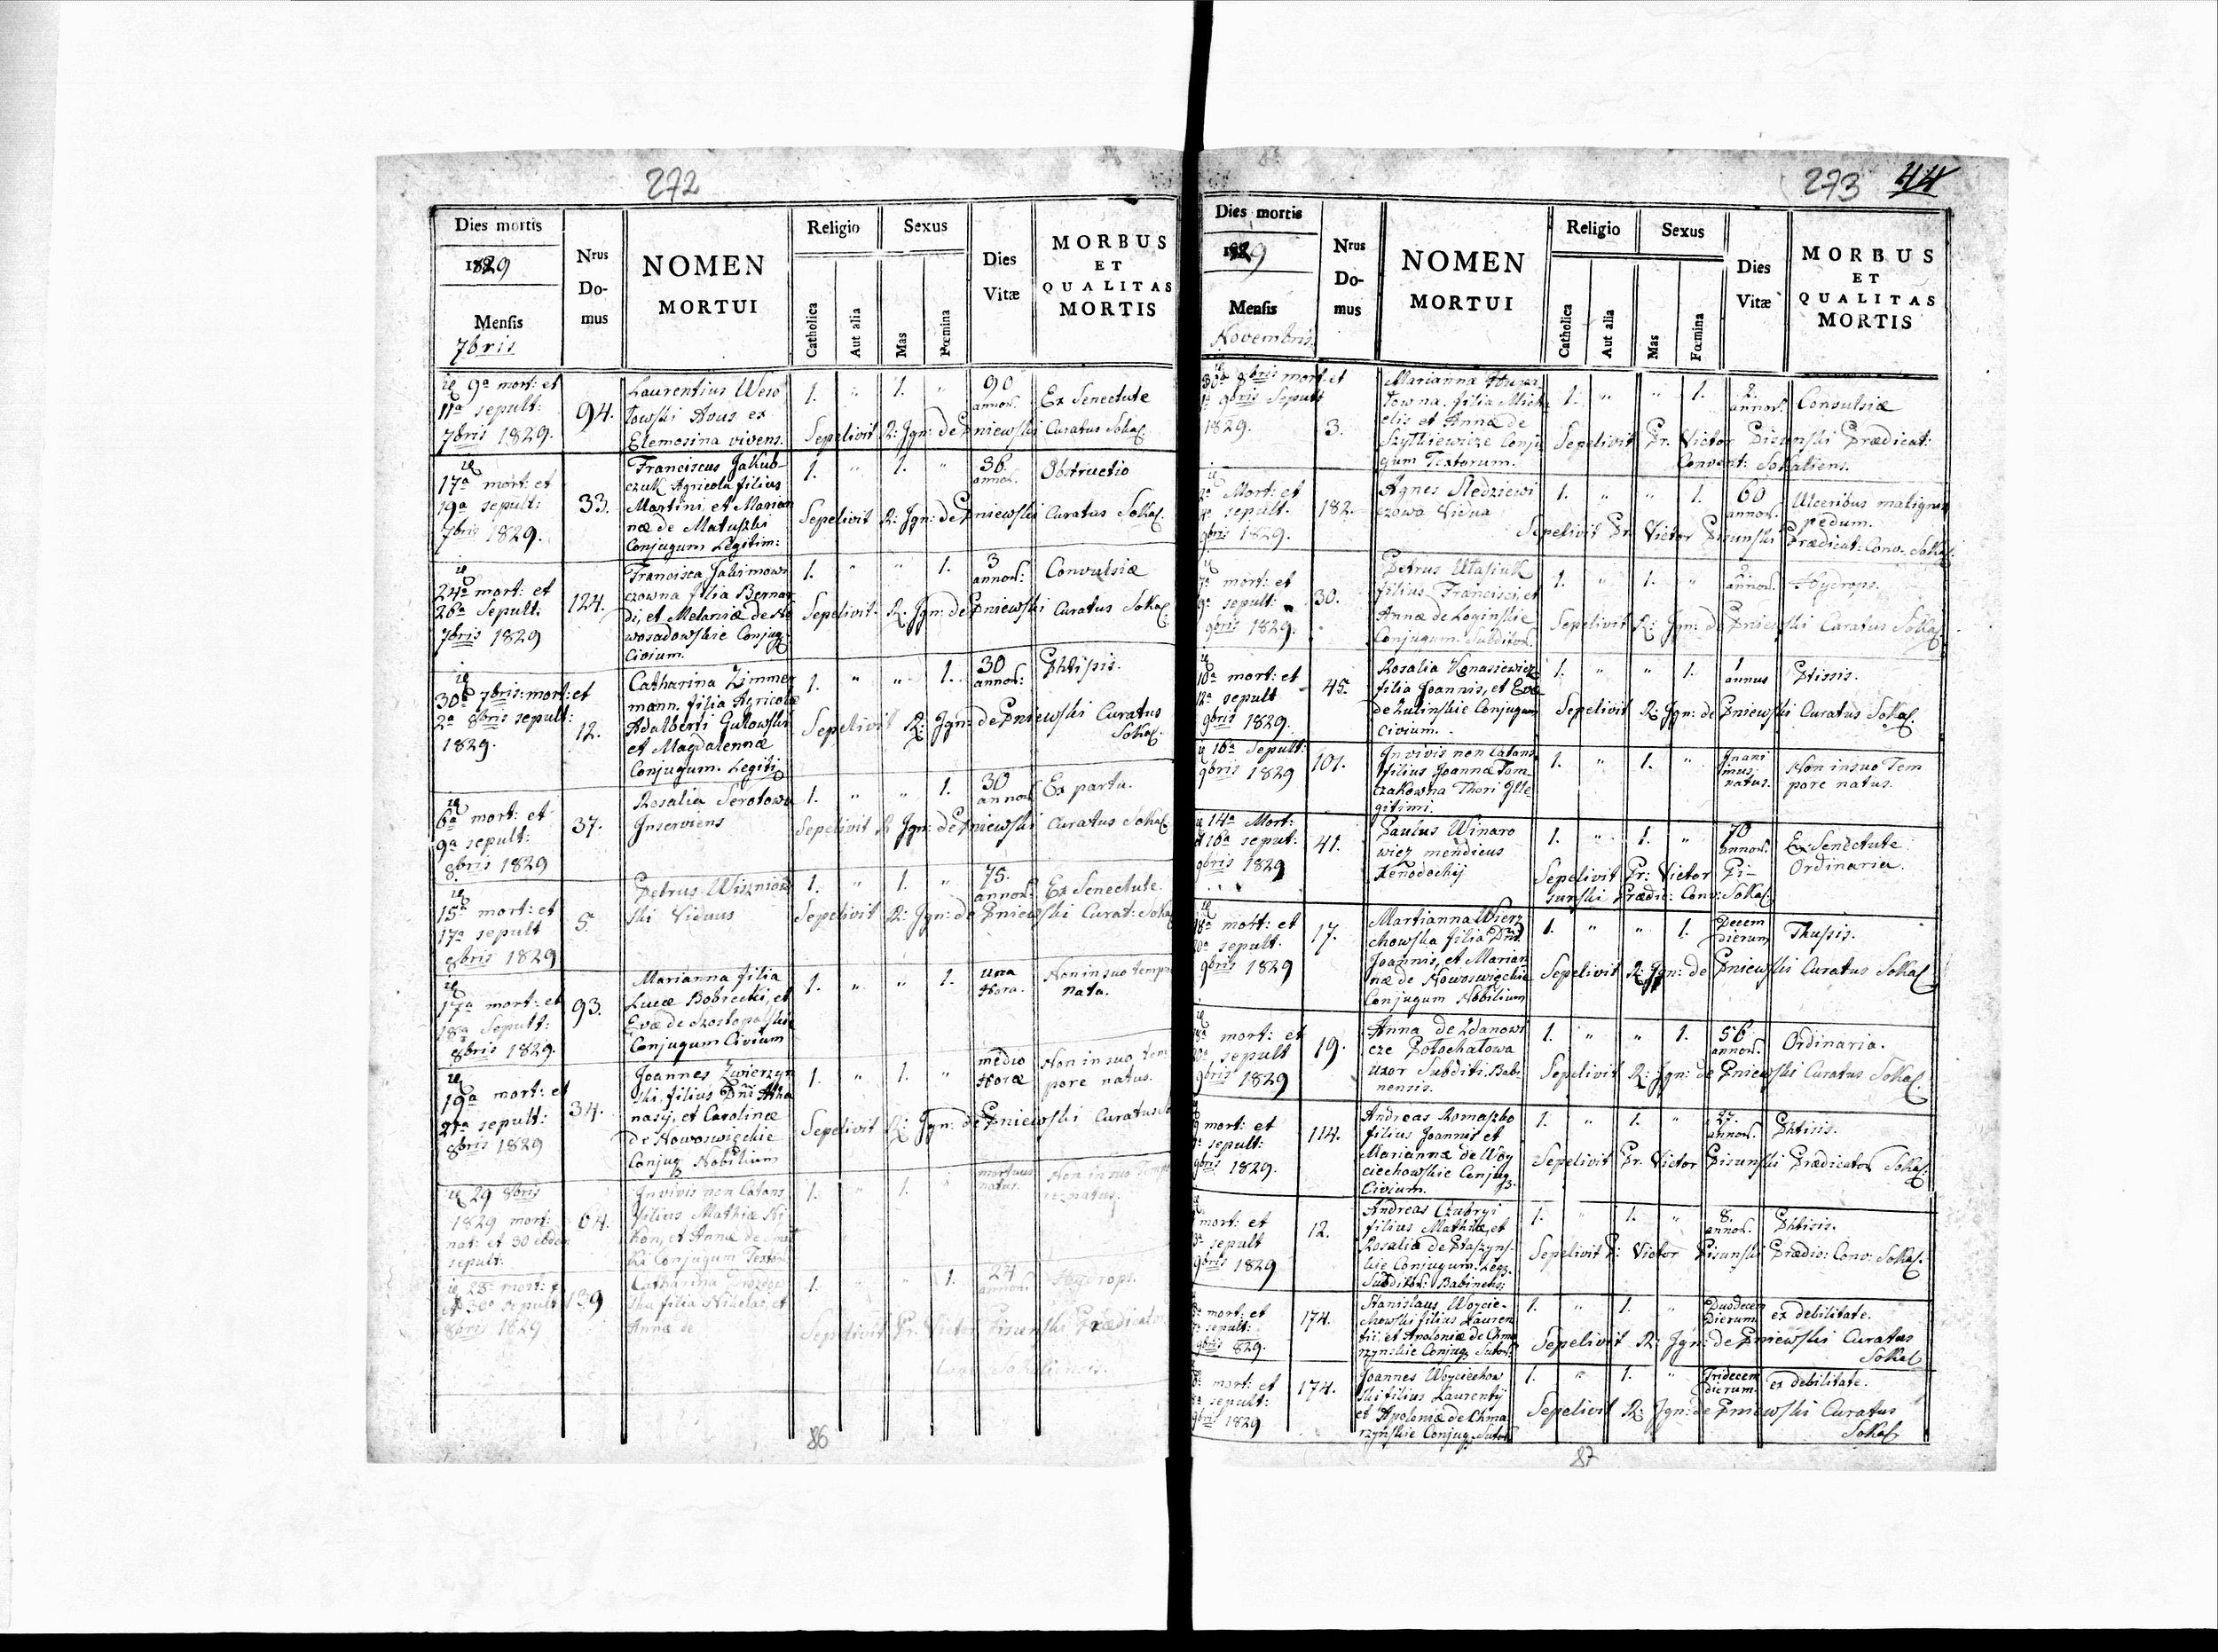 272
Dies mortis
1829
Mensis
7bris
Nrus
Do-
mus
NOMEN
MORTUI
Religio
Catholica
Aut alia
Sexus
Mas
Fœmina
Dies
Vitæ
MORBUS
ET
QUALITAS
MORTIS
9a mort: et
11a sepult:
7bris 1829.
94.
Laurentius Weso
łowski Avus ex
Elemosina vivens.
1. " 1. "
90
annor.
Ex Senectute
Sepelivit R: Jgn: de Pniewski Curatus Sokal.
17a mort: et
19a sepult:
7bris 1829.
33.
Franciscus Jakub-
czuk Agricola filius
Martini, et Marian
næ de Matuszki
Conjugum Legitim:
1. " 1. "
36
annor.
Obstructio
Sepelivit R: Jgn: de Pniewski Curatus Sokal.
24a mort: et
26a Sepult:
7bris 1829
124.
Francisca Jakimowi
czowna filia Bernar
di, et Melaniæ de No
wosadowskie Conjug:
Civium.
1. " " 1.
3
annor:
Convulsiæ
Sepelivit R: Jgn: de Pniewski Curatus Sokal.
30a 7bris: mort: et
2a 8bris sepult:
1829.
12.
Catharina Zimmer
mann. filia Agricolæ
Adalberti Gutowski
et Magdalennæ
Conjugum. Legiti
1. " " 1.
30
annor:
Phtipis.
Sepelivit R: Jgn: de Pniewski Curatus
Sokal.
6a mort: et
9a sepult:
8bris 1829
37.
Rosalia Serotowa
Jnserviens
1. " " 1.
30
annor
Ex partu.
Sepelivit R Jgn: de Pniewski Curatus Sokal.
15a mort: et
17a sepult
8bris 1829
5.
Petrus Wiszniow
ski Viduus
1. " 1. "
75.
annor.
Ex Senectute.
Sepelivit R: Jgn: de Pniewski Curat: Soka
17a mort: et
18a Sepult:
8bris 1829.
93.
Marianna filia
Lucæ Bobrecki, et
Evæ de Szostopalskie
Conjugum Civium
1. " " 1.
una
Hora.
Non in suo tempo
nata.
19a mort: et
21a sepult:
8bris 1829
34.
Joannes Zwierzyn
ski. filius Dni Atha
nasij, et Carolinæ
de Nowoswięckie
Conjug Nobilium
1. " 1. "
medio
Horæ
Non in suo tem
pore natus.
Sepelivit R: Jgn: de Pniewski Curatus
29 8bris
1829 mort:
nat: et 30
sepult:
64.
Jn vivis non Latans
filius Mathiæ
et Annæ de
Conjugum
1. " 1. "
mortuus
natus.
Non in suo Tempo
re natus.
28a mort:
30a sepult
8bris 1829
139
Catharina
filia Nikolai, et
Annæ de
1. " " 1.
24
annor.
Hydrops.
Sepelivit Pr: Victor Pisunski Prædicator
86
273 44
Dies mortis
1829
Mensis
Novembris.
Nrus
Do-
mus
NOMEN
MORTUI
Religio
Catholica
Aut alia
Sexus
Mas
Fœmina
Dies
Vitæ
MORBUS
ET
QUALITAS
MORTIS
30a 8bris mort: et
1a 9bris Sepult
1829.
3.
Marianna
towna. filia Mich
elis et Annæ de
Szytkiewicze Conju
gum Textorum.
1. " " 1.
2.
annor.
Convulsiæ
Sepelivit Pr. Victor Pisunski Prædicat:
Convent: Sokaliens.
2a Mort: et
sepult.
9bris 1829.
182.
Agnes Sledziewi
czowa Vidua
1. " " 1.
60
annor.
Ulceribus malignis
pedum.
Sepelivit Pr: Victor Pisunski Prædicat: Conv: Sokal.
7a mort: et
9a sepult:
9bris 1829.
30.
Petrus Utasiuk
filius Francisci, et
Annæ de Loginskie
Conjugum. Subditor.
1. " 1. "
2
annor.
Hydrops.
Sepelivit R: Jgn: de Pniewski Curatus Sokal
10a mort: et
12a sepult
9bris 1829.
45.
Rosalia Kanasiewicz
filia Joannis, et Evæ
de Zulinskie Conjugum
Civium.
1. " " 1.
1
annus
Ptissis.
Sepelivit R: Jgn: de Pniewski Curatus Sokal.
16a Sepult:
9bris 1829
101.
Jn vivis non Latans
filius Joannæ Tom-
czakowna Thori Jlle
gitimi.
1. " 1. "
Jnani
mus
natus.
Non in suo Tem
pore natus.
14a Mort:
16a sepult:
9bris 1829
41.
Paulus Winaro
wicz mendicus
Xenodochij
1. " 1. "
70
annor.
Ex Senectute
Ordinaria.
Sepelivit Pr: Victor Pi-
sunski Prædic: Conv: Sokal.
18a mort: et
20a sepult.
9bris 1829
17.
Martianna Wierz
chowska filia Dni
Joannis, et Marian
næ de Nowoswięckie
Conjugum Nobilium
1. " " 1.
Decem
dierum
Thussis.
Sepelivit R: Jgn: de Pniewski Curatus Sokal
mort: et
sepult
9bris 1829
19.
Anna de Zdanowi
cze Potochatowa
uxor Subditi Babi-
nensis.
1. " " 1.
56
annor.
Ordinaria.
Sepelivit R: Jgn: de Pniewski Curatus Sokal.
mort: et
sepult:
9bris 1829.
114.
Andreas Romaszko
filius Joannis et
Mariannæ de Woy
ciechowskie Conjug
Civium.
1. " 1. "
27.
annor.
Phtisis.
Sepelivit Pr. Victor Pisunski Prædicator Sokal.
mort: et
sepult
9bris 1829
12.
Andreas Czubryi
filius Mathiæ, et
Rosaliæ de Ptaszyns-
kie Conjugum. Leg.
Subditor: Babinens:
1. " 1. "
8.
annor.
Phtisis.
Sepelivit P: Victor Pisunski Prædic: Conv: Sokal.
mort: et
sepult:
9bris 829.
174.
Stanislaus Woycie-
chowski filius Lauren
tii et Apoloniæ de Chma
rzynskie Conjug. Sutor.
1. " 1. "
Duodecem
Dierum
ex debilitate.
Sepelivit R: Jgn: de Pniewski Curatus
Sokal
mort: et
sepult:
9bris 1829
174.
Joannes Woyciechow
ski filius Laurentij
et Apoloniæ de Chma
rzynskie Conjug. Sutor
1. " 1. "
Tridecem
dierum
ex debilitate.
Sepelivit R: Jgn: de Pniewski Curatus
Sokal
87